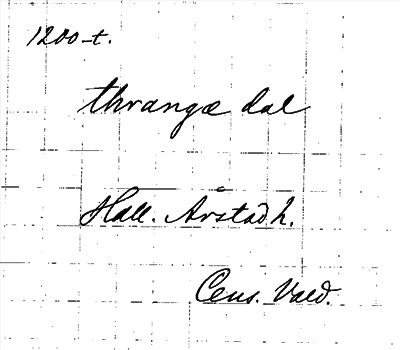 1200-t.
thrangæ dal
Hall. Årstad h.
Cens. Vald.